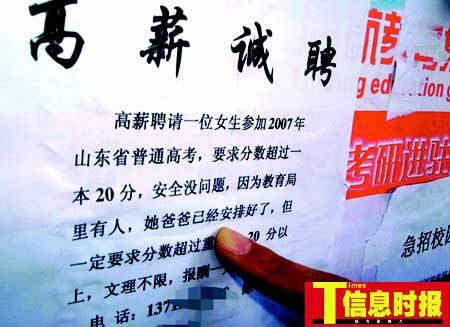 高薪诚聘
高薪聘请一位女生参加2007年
山东省普通高考，要求分数超过一
本20分，安全没问题，因为教育局
里有人，她爸爸已经安排好了，但
一定要求分数超过重 20分以
上，文理不限，报酬一
电话：137
ng education g
考研进驻
急招校园
Times
信息时报